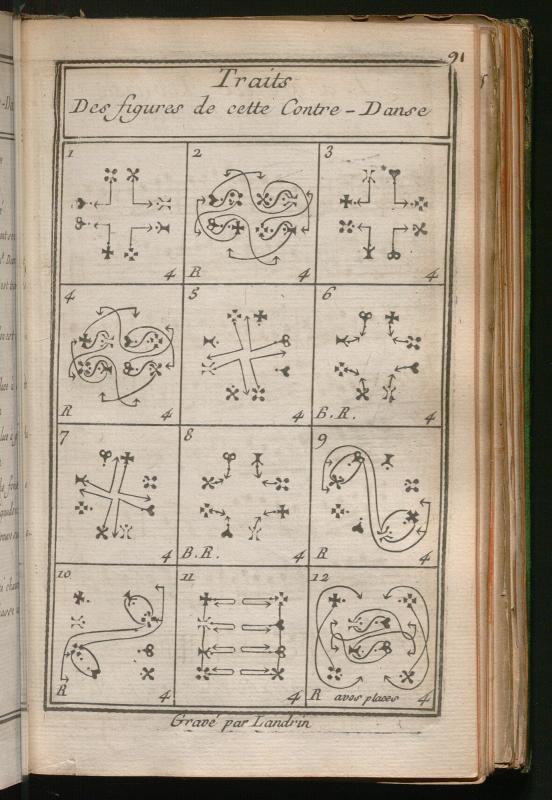 91
Traits
Des figures de cette Contre-Danse
1
4
2
R
4
3
4
4
R
4
5
4
6
B.R.
4
7
4
8
B.R.
4
9
R
4
10
R
4
11
4
12
R avos places 4
Gravé par Landrin